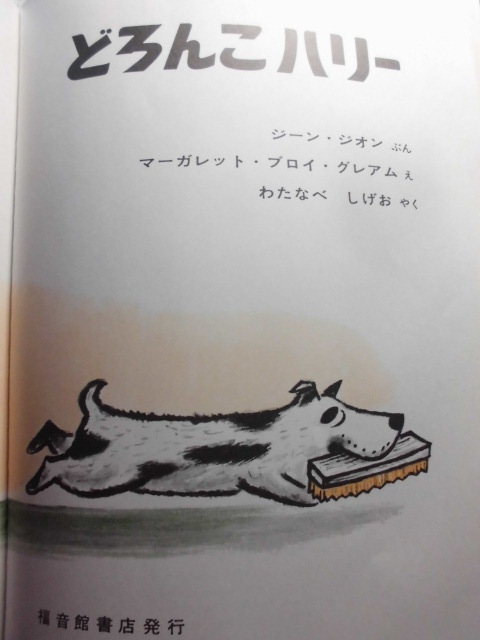 どろんこハリー
ジーン・ジオン ぶん
マーガレット・ブロイ・グレアム え
わたなべ しげお やく
福音館書店発行